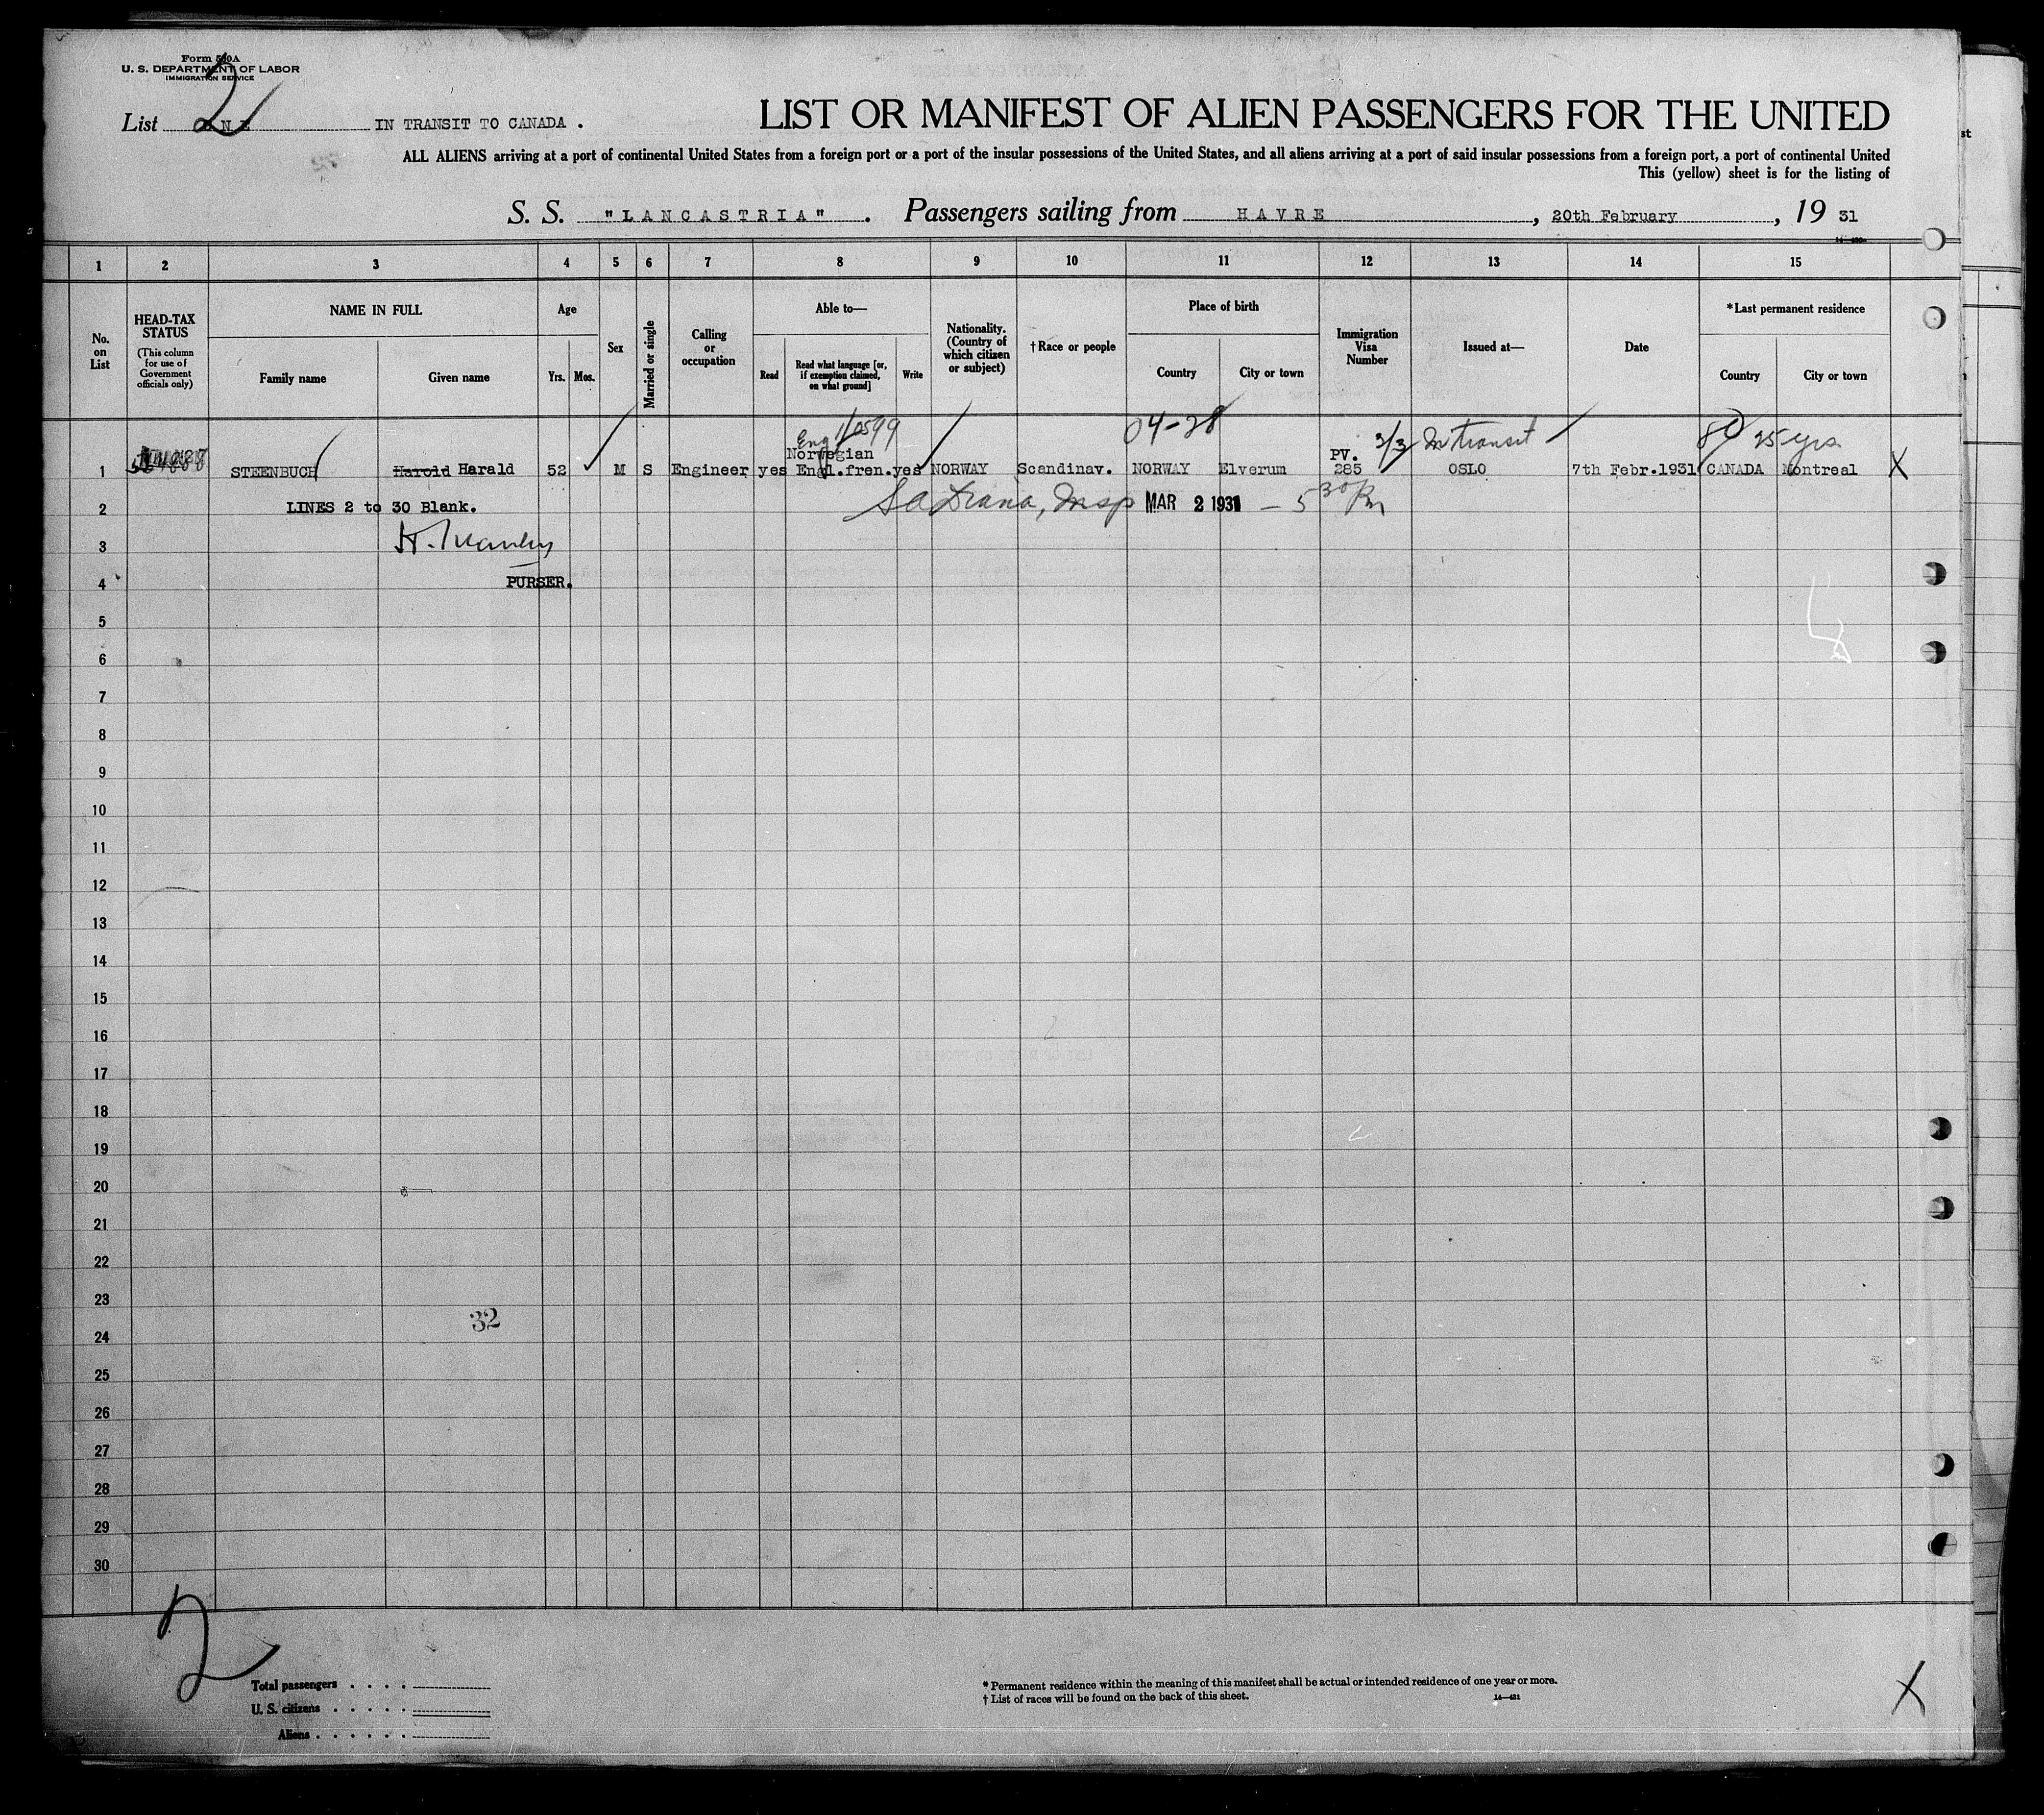 Form 500A
U. S. DEPARTMENT OF LABOR
IMMIGRATION SERVICE
2
List ONE IN TRANSIT TO CANADA .
LIST OR MANIFEST OF ALIEN PASSENGERS FOR THE UNITED
ALL ALIENS arriving at a port of continental United States from a foreign port or a port of the insular possessions of the United States, and all aliens arriving at a port of said insular possessions from a foreign port, a port of continental United
This (yellow) sheet is for the listing of
S. S. "LANCASTRIA" . Passengers sailing from HAVRE , 20th February , 19 31
1 2 3 4 5 6 7 8 9 10 11 12 13 14 15
No. on List
HEAD-TAX STATUS
(This column for use of Government officials only)
NAME IN FULL
Family name
Given name
Age
Yrs.
Mos.
Sex
Married or single
Calling or occupation
Able to—
Read
Read what language [or, if exemption claimed, on what ground]
Write
Nationality. (Country of which citizen or subject)
†Race or people
Place of birth
Country
City or town
Immigration Visa Number
Issued at—
Date
*Last permanent residence
Country
City or town
Eng 04-28 3/3 In transit 25 yrs
Norwegian PV.
1 STEENBUCH Harold Harald 52 M S Engineer yes Engl.fren. yes NORWAY Scandinav. NORWAY Elverum 285 OSLO 7th Febr.1931 CANADA Montreal X
2 LINES 2 to 30 Blank. Insp MAR 2 1931 — 5 30 Pm
3 H.
4 PURSER.
5
6
7
8
9
10
11
12
13
14
15
16
17
18
19
20
21
22
23
32
24
25
26
27
28
29
30
2
Total passengers . . . .
U. S. citizens . . . . .
Aliens . . . . . .
* Permanent residence within the meaning of this manifest shall be actual or intended residence of one year or more.
† List of races will be found on the back of this sheet.
14—421
X